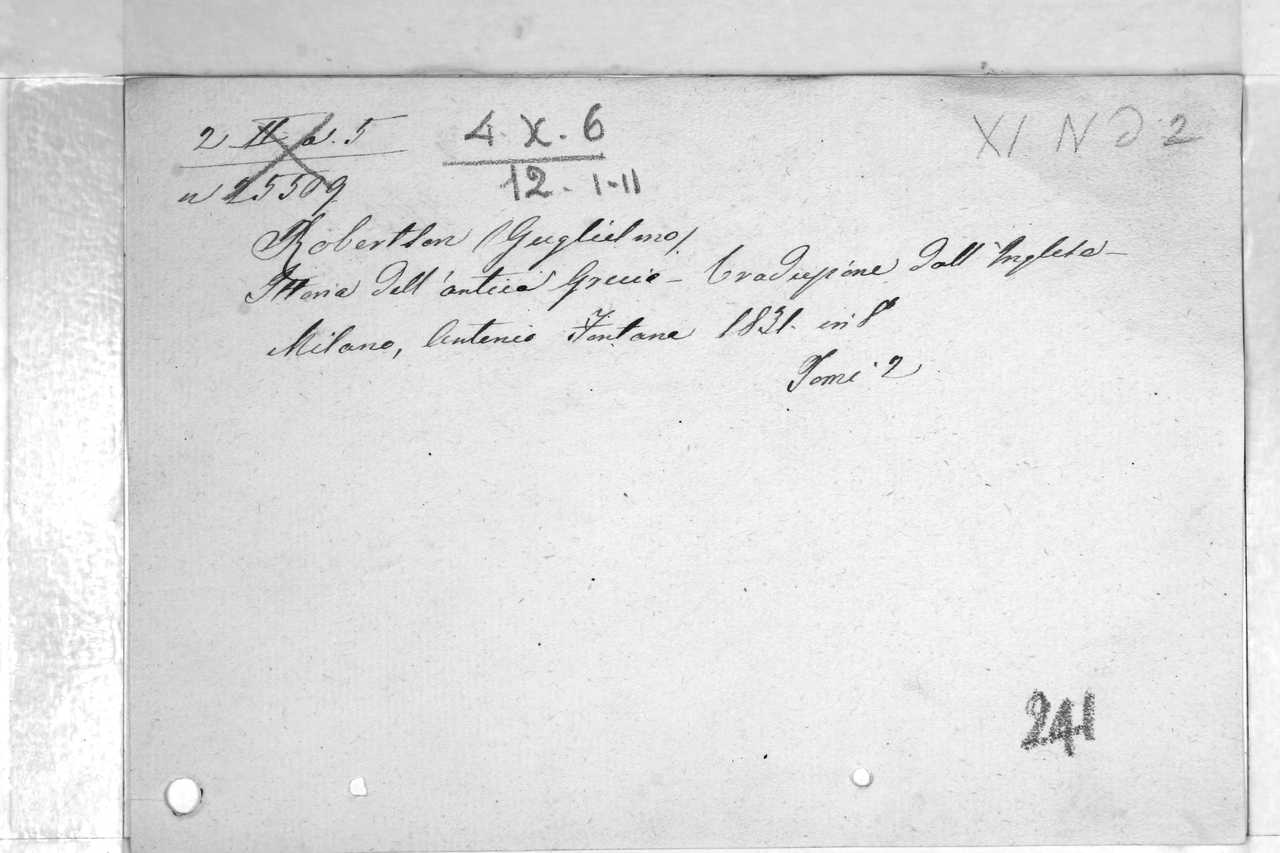 2 II. a. 5
4. X. 6
XI N d 2
n 25509
12. I-II
Robertson (Guglielmo)
Istoria dell'antica Grecia – Traduzione dall'Inglese –
Milano, Antonio Fontana 1831. in 8°
Tomi 2
241